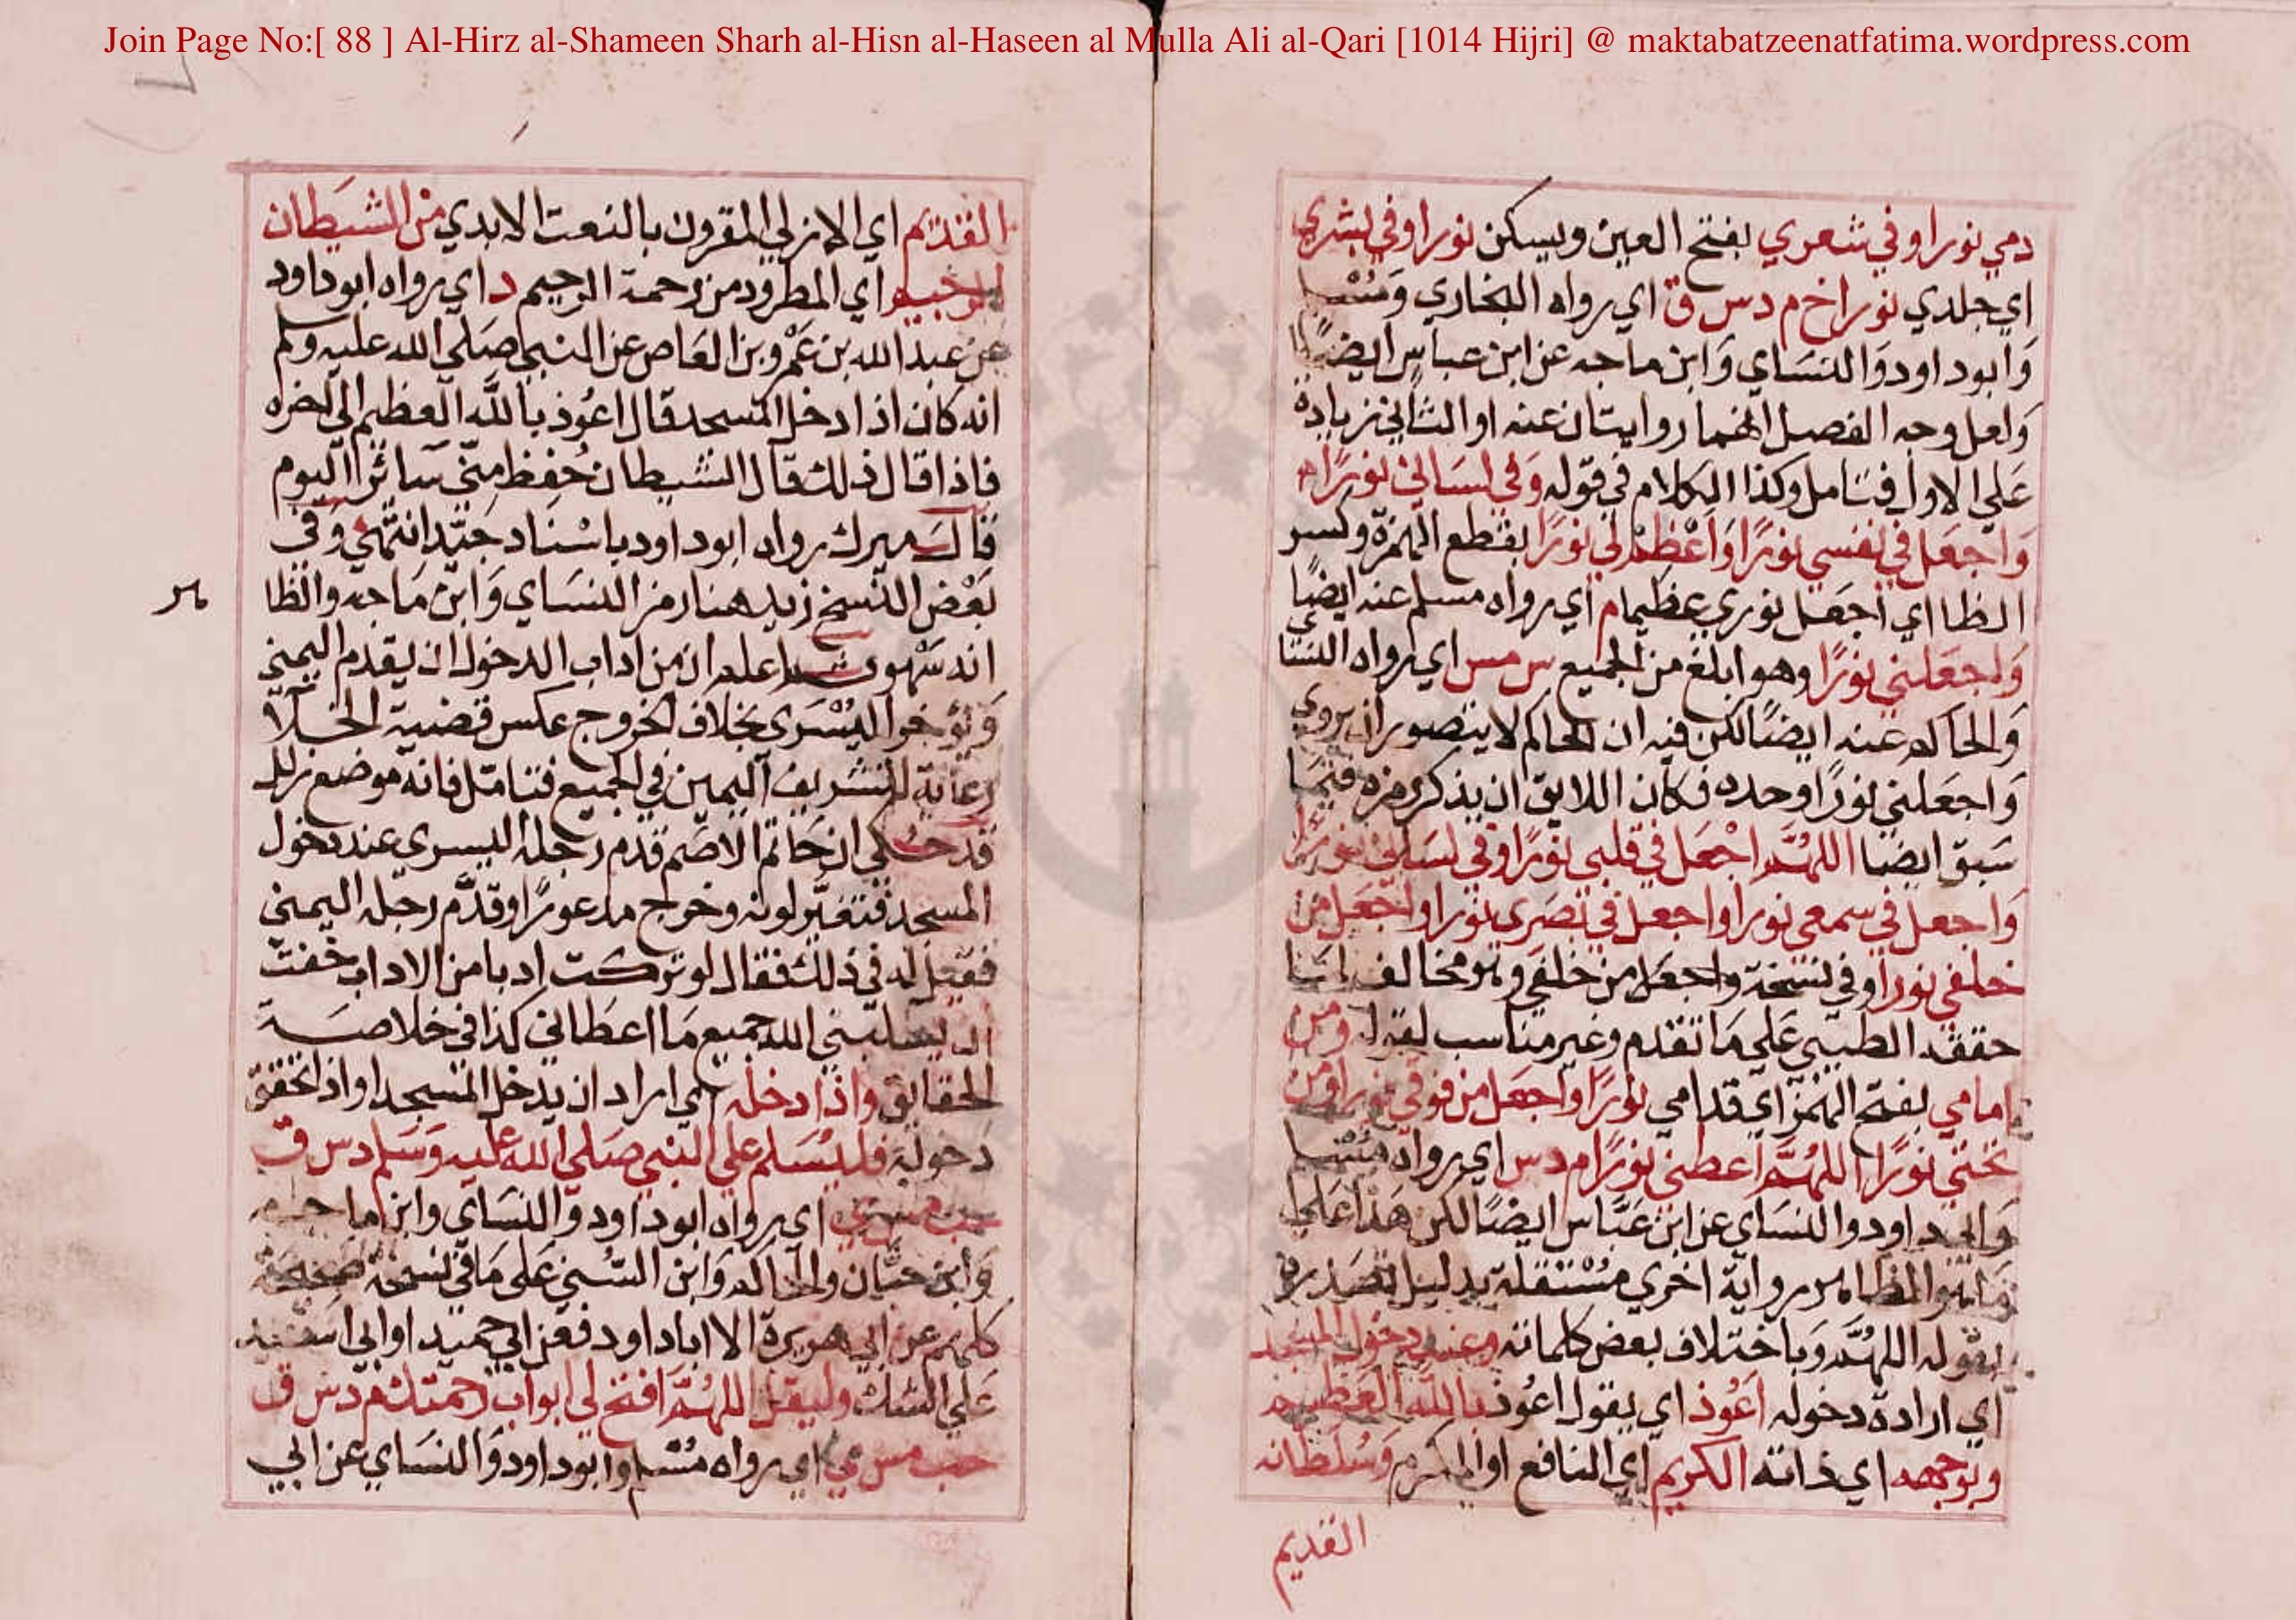 Join Page No:[ 88 ] Al-Hirz al-Shameen Sharh al-Hisn al-Haseen al Mulla Ali al-Qari [1014 Hijri] @ maktabatzeenatfatima.wordpress.com
دمي نورا وفي شعري بفتح العين ويسكن نورا وفي بشري
اي جلدي نورا خ م د س ق اي رواه البخاري وَمُسْلم
وَابوداود وَالنسَاي وَابن ماجه عن ابن عباس ايضًا
وَلعل وجه الفصل انهما روايتان عنه او الثاني بزيادة
عَلي الاول فتامل وكذا الكلام في قوله وَفي لسَاني نورًا
وَاجعَل في نفسي نورًا وَاَعْظِمْ لي نورًا بقطع الهمزة وكسر
الظا اي اجعَل نوري عظيما م اي رواه مسلم عنه ايضًا
وَاجعَلني نورًا وهو ابلغ من الجميع س مس اي رواه النسَاي
وَالحاكم عنه ايضًا لكن فيه ان الحاكم لا يتصور ان يروي
وَاجعَلني نورًا وحده فكان اللايق ان يذكر رمزه فيمَا
سَبق ايضا اللهُمَّ اجْعَل في قلبي نورًا وفي لسَاني نورًا
وَاجعل في سمعي نورا واجعل في بَصَري نورا واجعَل من
خلفي نورا وفي نسخة واجعَل من خلفي وهو مخالف لما
حققه الطيبي عَلي مَا تقدم وغير مناسب لقوله ومن
امامي بفتح الهمز اي قدامي نورًا واجعَل من فوقي نورا ومن
تحتي نورًا اللهُمَّ اعطني نورًا م د س اي رواه مُسْلم
وَابي داود والنسَاي عن ابن عَبَّاس ايضًا لكن هَذا عَلي
مَا هو الظاهر رواية اخري مُسْتقلة بدليل تصَديره
بقوله اللهُمَّ وَباختلاف بعض كلماته وعند دخول المسجد
اي ارادة دخوله اَعُوذ اي يقول اعُوذ بالله العَظيم
وبوجهه اي ذاته الكريم اي النافع او المكرم وَسُلطانه
القديم
القديم اي الازلي المقرون بالنعت الابدي من الشيَطان
الرجيم اي المطرود من رحمة الرحيم د اي رواه ابوداود
عن عبد الله بن عَمْرو بن العَاص عن النبي صَلي الله عليه وسلم
انه كان اذا دخل المسجد قال اعُوذ بالله العظيم الي اخره
فاذا قال ذلك قال الشيطان حُفِظ مِنّي سَائر اليوم
قال ميرك رواه ابوداود باسْنَاد جَيّد انتهي وَفي
بَعْض النسخ زيد هنا رمز النسَاي وَابن مَاجه والظا
هر
انه سَهو ثم اعلم ان من اداب الدخول ان يقدم اليمني
وَيؤخر اليُسْرَي بخلاف الخروج عكس قضية الخلا
رعَاية لتشريف اليمين في الجميع فتامّل فانه موضع زلل
قد حُكي ان حَاتم الاصَم قدم رجله اليسري عند دخول
المسجد فتغيَّر لونه وخرج مذعورًا وقدَّم رجله اليمني
فقيل له في ذلك فقال لو تركت ادبا من الاداب خفت
ان يسلبني الله جميع مَا اعطَاني كذا في خلاصَة
الحقايق واذا دخله اي اراد ان يدخل المسجد او اذا تحقق
دخوله فليُسَلم علي النبي صَلي الله عليه وَسَلم د س ق
حب مس ي اي رواه ابوداود وَالنسَاي وابن ماجه
وَابن حبَّان والحاكم وَابن السُّني عَلي مَا في نسخة صحيحَة
كلهم عن ابي هريرة الا ابا داود فعن ابي حميد او ابي اسَيد
عَلي الشك وليقل اللهُمَّ افتح لي ابواب رحمتك م د س ق
حب مس ي اي رواه مُسْلم وابوداود وَالنسَاي عن ابي